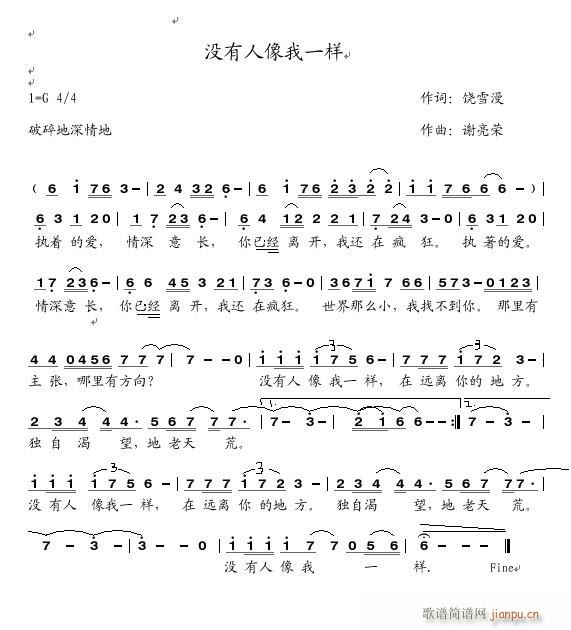 没有人像我一样
1=G 4/4
作词: 饶雪漫
破碎地深情地
作曲: 谢亮荣
( 6 i 76 3 - | 2 4 32 6 - | 6 i 76 2 3 2 2 | i i 7 6 6 6 - ) |
6 3 1 20 | 1 7 23 6 - | 6 4 12 2 2 2 1 | 7 24 3 - 0 | 6 31 20 |
执着的爱, 情深 意 长, 你已经 离 开,我还 在 疯 狂。 执 著的爱。
17 236 - | 6 6 45 3 21 | 7 3 6 - 0 | 3 671 7 66 | 573 - 0123 |
情深意 长, 你已经 离 开,我还 在疯狂。 世界那么小,我找不到你。那里有
4 4 0456 7 7 7 | 7 - - 0 | i i i i 75 6 - | 7 7 7 i 72 3 - |
主 张,哪里有方向? 没有人 像 我一 样, 在 远离 你的 地 方。
2 3 4 4 4· 5 6 7 7 7· | 7 - 3 - | 2 i 6 6 - - :| 7 - 3 - |
独 自 渴 望,地 老天 荒。
i i i i 75 6 - | 7 7 7 i 72 3 - | 2 3 4 4 4· 5 6 7 7 7· |
没 有人 像我一 样, 在 远离 你 的地方。 独自渴 望,地 老天 荒。
7 - 3 - 3 | 3 - - 0 | i i i i 7 7 0 5 6 | 6 - - ||
没 有 人 像 我 一 样. Fine
歌谱简谱网
jianpu.cn